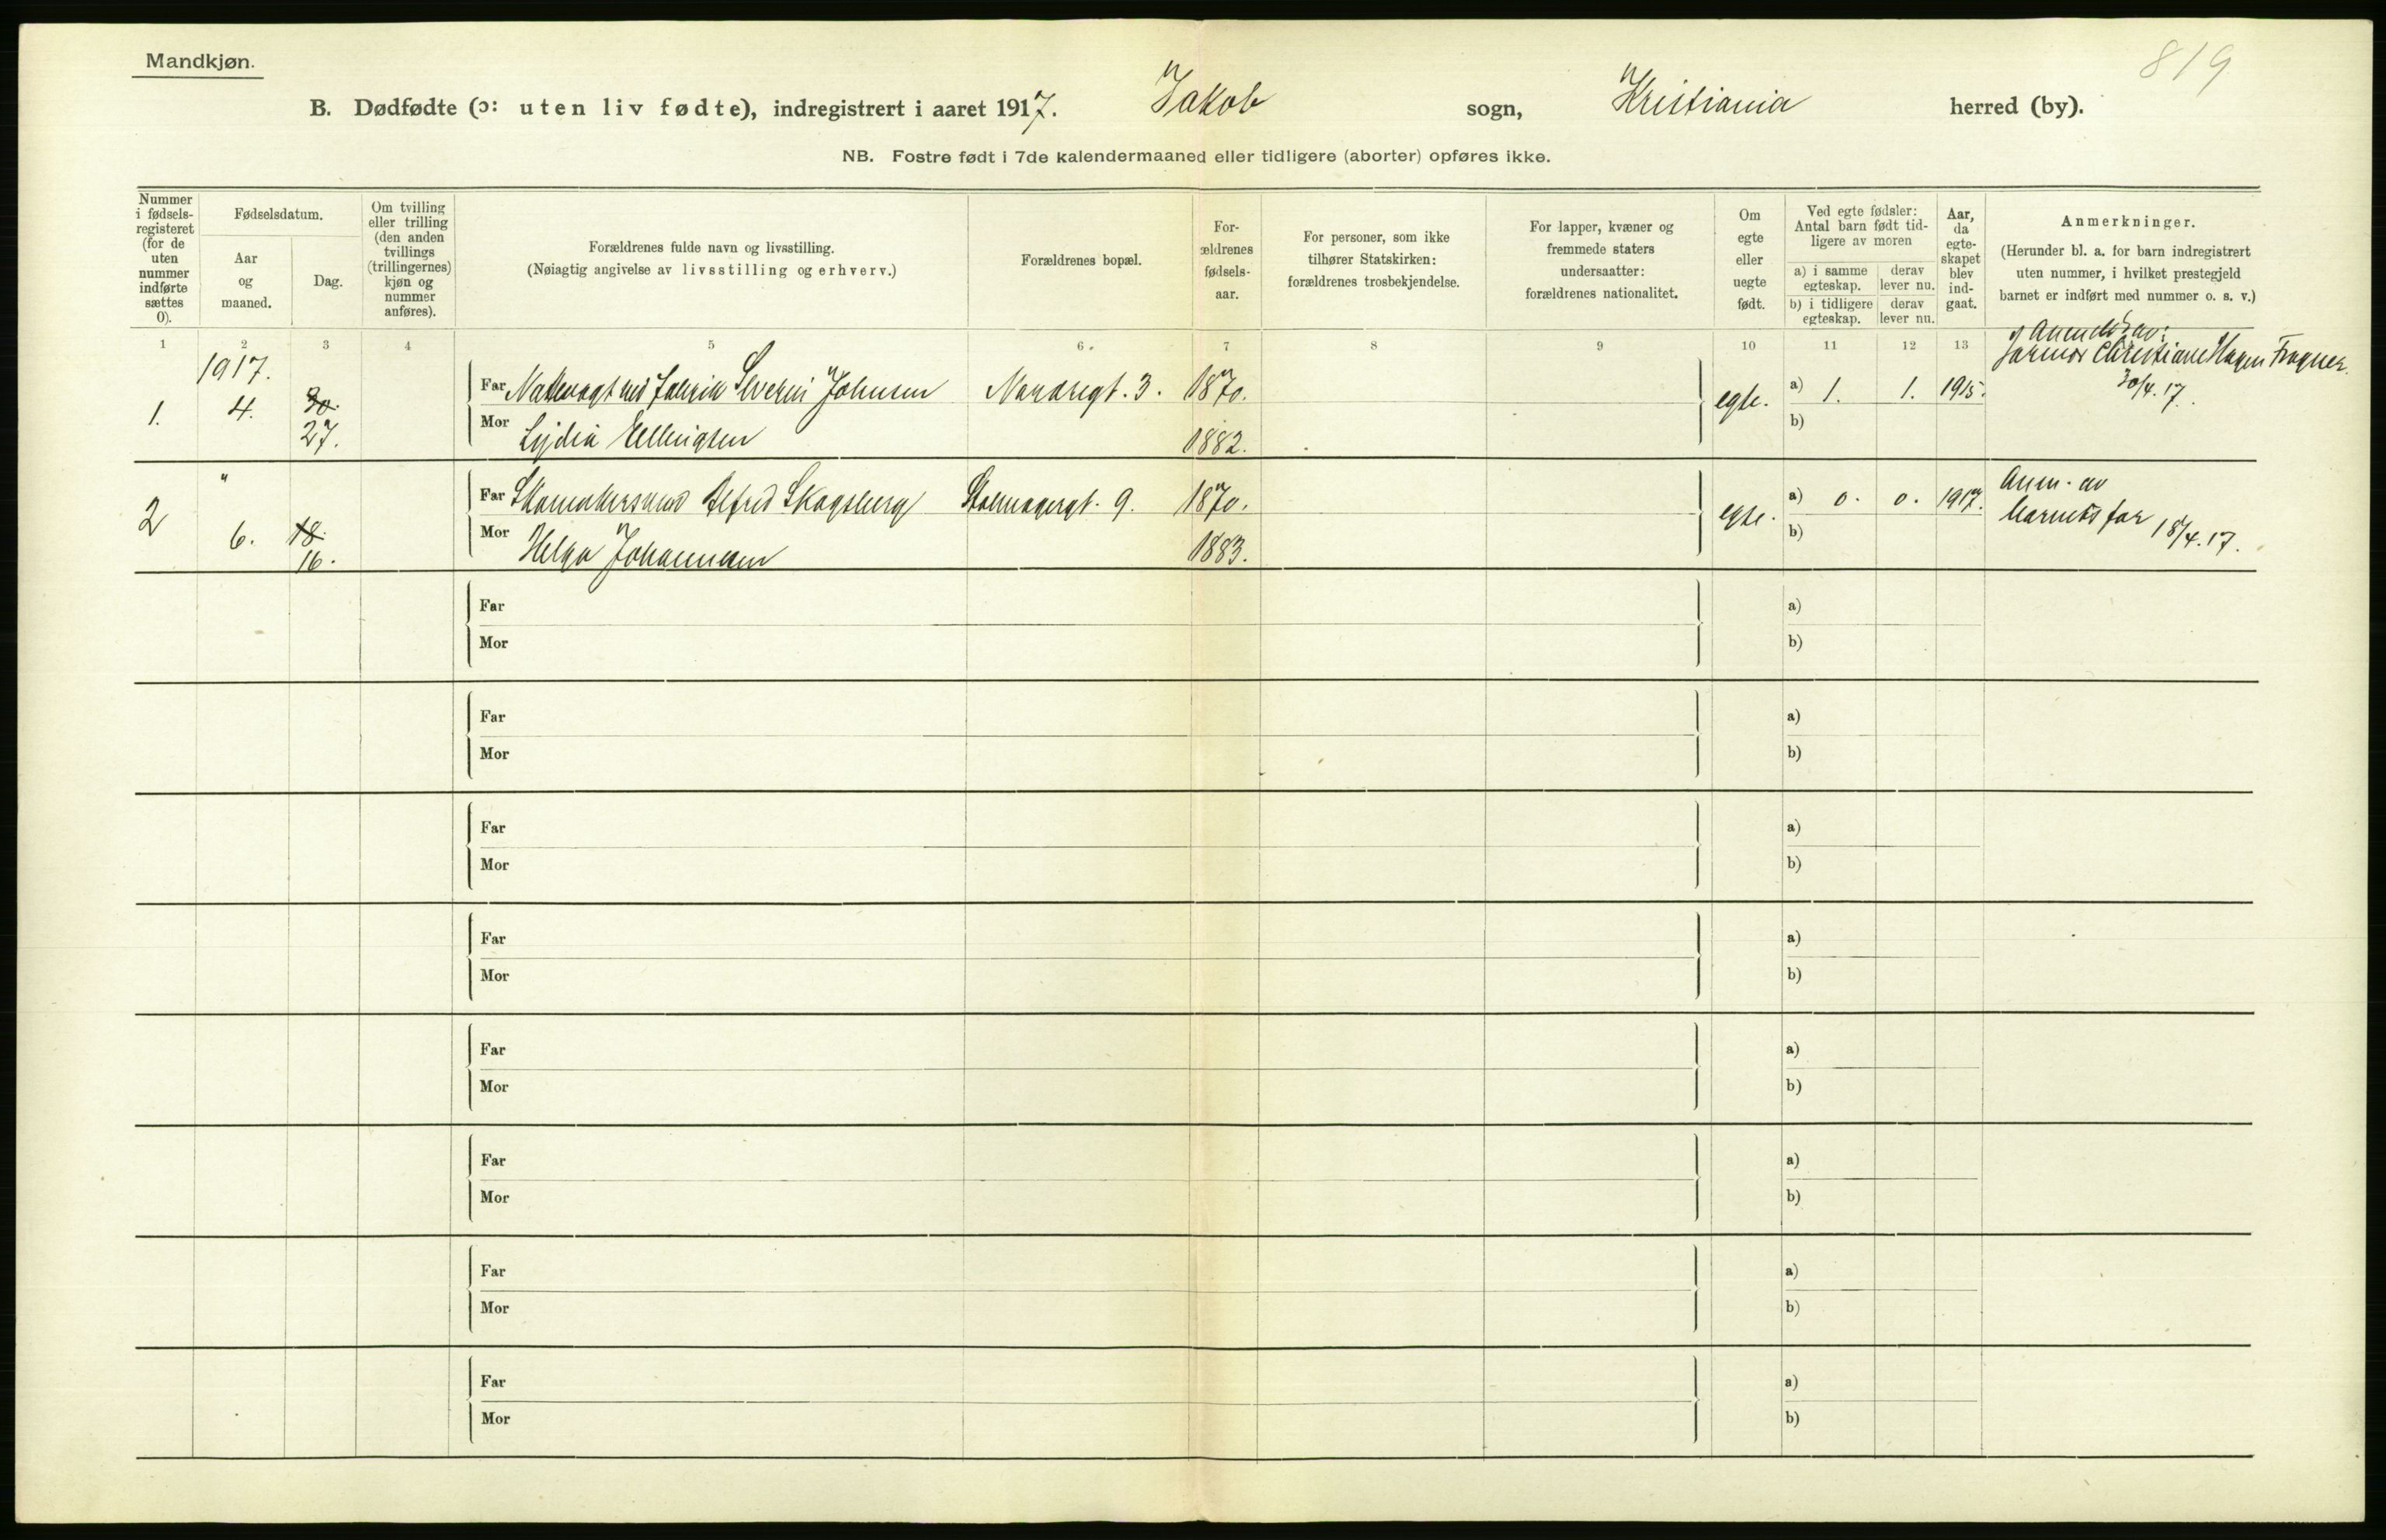 819
Mandkjøn.
B. Dødfødte (ɔ: uten liv fødte), indregistrert i aaret 1917. Jakob sogn, Kristiania herred (by).
NB. Fostre født i 7de kalendermaaned eller tidligere (aborter) opføres ikke.
Nummer i fødsels-registeret (for de uten nummer indførte sættes 0).
Fødselsdatum.
Aar og maaned.
Dag.
Om tvilling eller trilling (den anden tvillings (trillingernes) kjøn og nummer anføres).
Forældrenes fulde navn og livsstilling.
(Nøiagtig angivelse av livsstilling og erhverv.)
Forældrenes bopæl.
For-ældrenes fødsels-aar.
For personer, som ikke tilhører Statskirken: forældrenes trosbekjendelse.
For lapper, kvæner og fremmede staters undersaatter: forældrenes nationalitet.
Om egte eller uegte født.
Ved egte fødsler: Antal barn født tid-ligere av moren
a) i samme egteskap.
derav lever nu.
b) i tidligere egteskap.
derav lever nu.
Aar, da egte-skapet blev ind-gaat.
Anmerkninger.
(Herunder bl. a. for barn indregistrert uten nummer, i hvilket prestegjeld barnet er indført med nummer o. s. v.)
1 2 3 4 5 6. 7 8 9 10 11 12 13
1917.
1. 4. 30. 27.
Far Severin Johnsen 1870.
Mor Lydia Ellingsen 1882.
egte. a) 1. 1. 1915.
b)
av:
Christiane Hagen Fragner.
30/4.17.
2 " 6. 18. 16.
Far Alfred Skogsberg 9. 1870.
Mor Helga Johannesen 1883.
egte. a) 0. 0. 1917.
b)
Anm. av
barnets far 18/4.17.
Far a)
Mor b)
Far a)
Mor b)
Far a)
Mor b)
Far a)
Mor b)
Far a)
Mor b)
Far a)
Mor b)
Far a)
Mor b)
Far a)
Mor b)